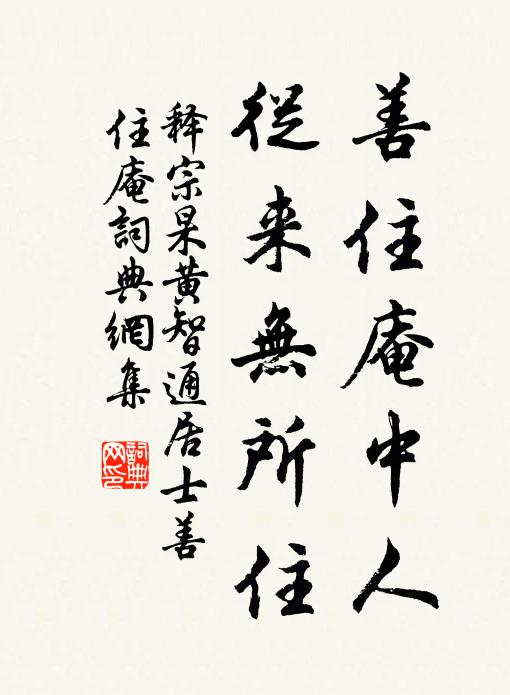 善住庵中人
從来無所住
释宗杲黄智通居士善
住庵詞典網集
詞典網印